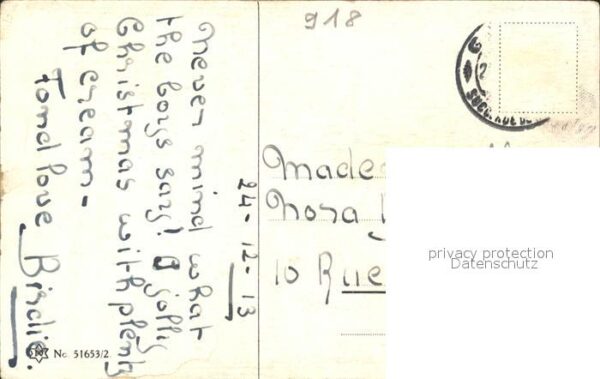 918
never mind what
the boys say! A jolly
Christmas with plenty
of cream -
Fond love Birdie.
24-12-13
Nora
10 Rue
No. 51653/2
privacy protection
Datenschutz